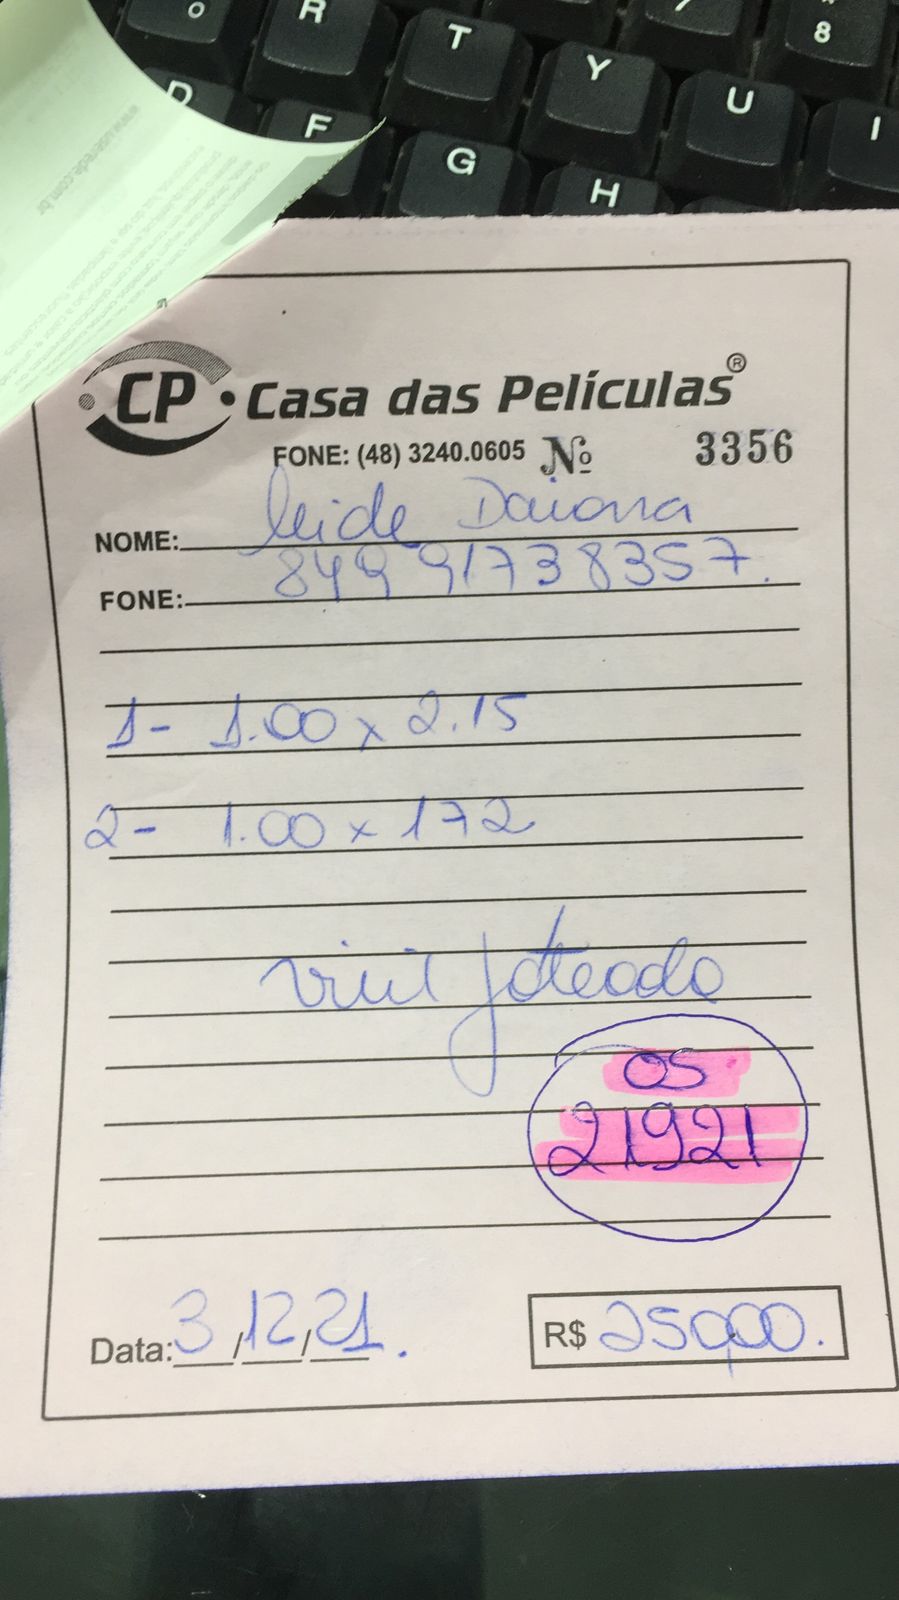 R T Y U I 8
D F G H
CP Casa das Películas®
FONE: (48) 3240.0605 Nº 3356
NOME: leide Daiana
FONE: 84991738357.
1- 1.00 x 2.15
2- 1.00 x 172
vinil jateado
OS
21921
Data: 3/12/21. R$ 250,00.